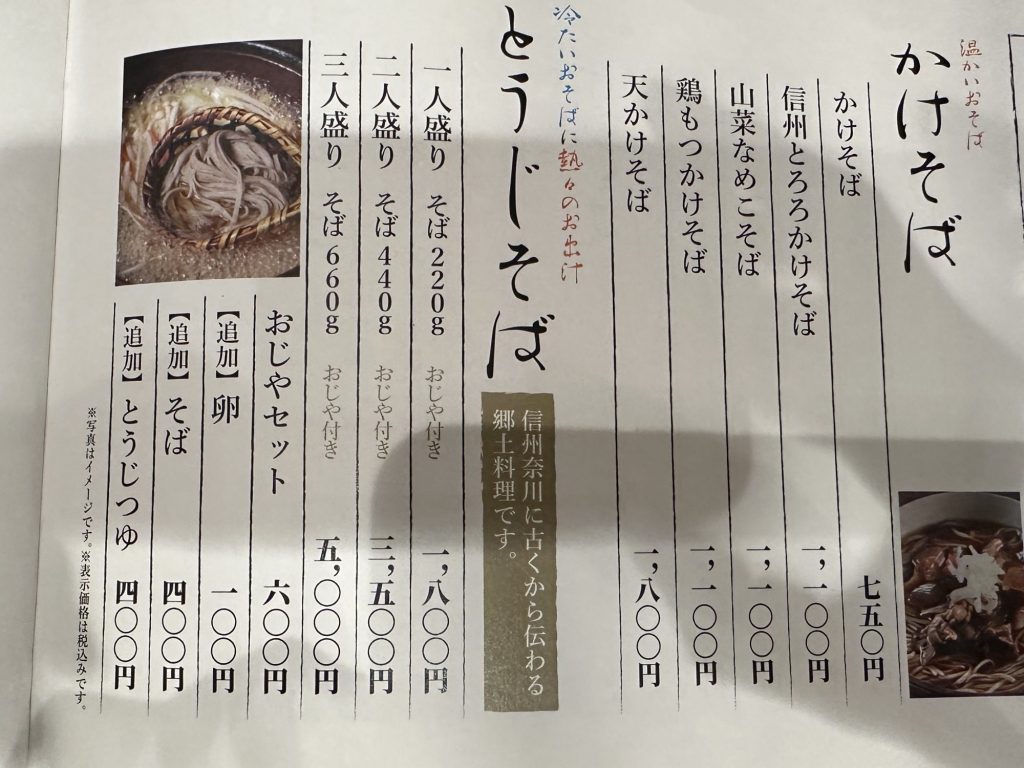 温かいおそば
かけそば
かけそば 七五〇円
信州とろろかけそば 一,一〇〇円
山菜なめこそば 一,一〇〇円
鶏もつかけそば 一,一〇〇円
天かけそば 一,八〇〇円
冷たいおそばに熱々のお出汁
とうじそば
信州奈川に古くから伝わる
郷土料理です。
一人盛り そば220g おじや付き 一,八〇〇円
二人盛り そば440g おじや付き 三,五〇〇円
三人盛り そば660g おじや付き 五,〇〇〇円
おじやセット 六〇〇円
【追加】卵 一〇〇円
【追加】そば 四〇〇円
【追加】とうじつゆ 四〇〇円
※写真はイメージです。※表示価格は税込みです。